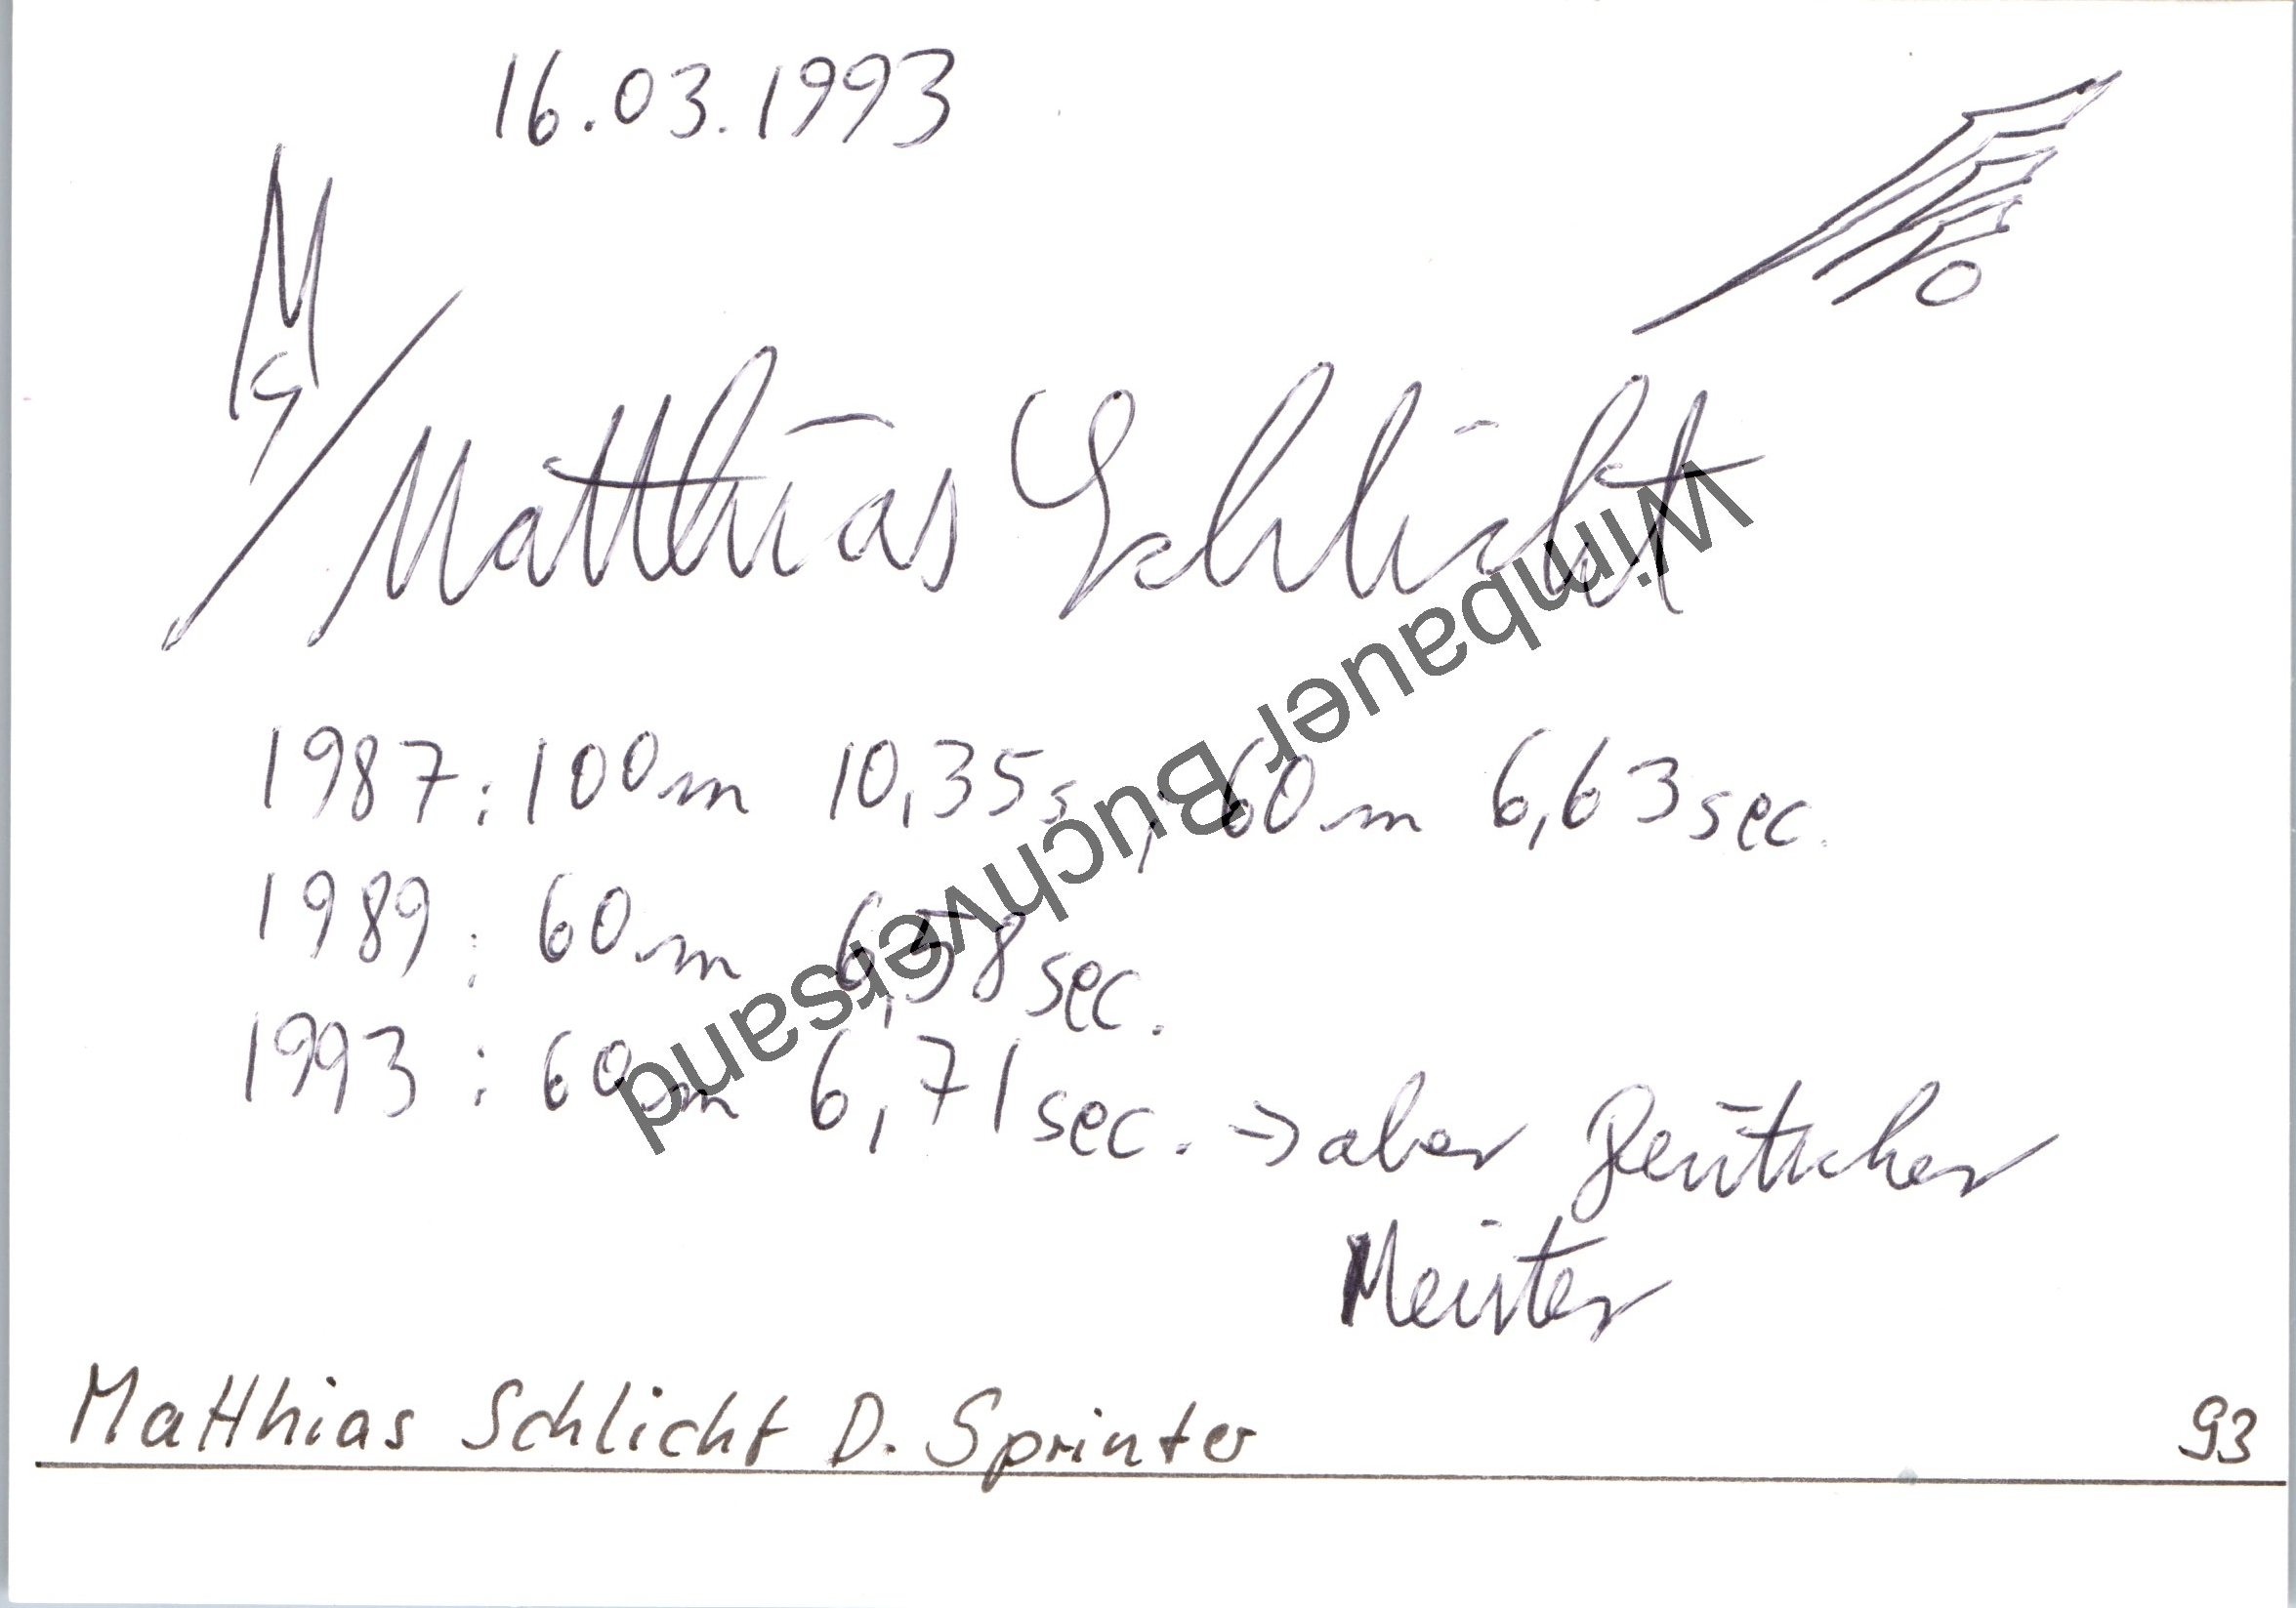 16.03.1993
Matthias Schlicht
1987: 100m 10,35s ; 60m 6,63sec.
1989: 60m 6,58sec.
1993: 60m 6,71sec. → aber Deutscher
Meister
Wimbauer Buchversand
Matthias Schlicht D. Sprinter 93